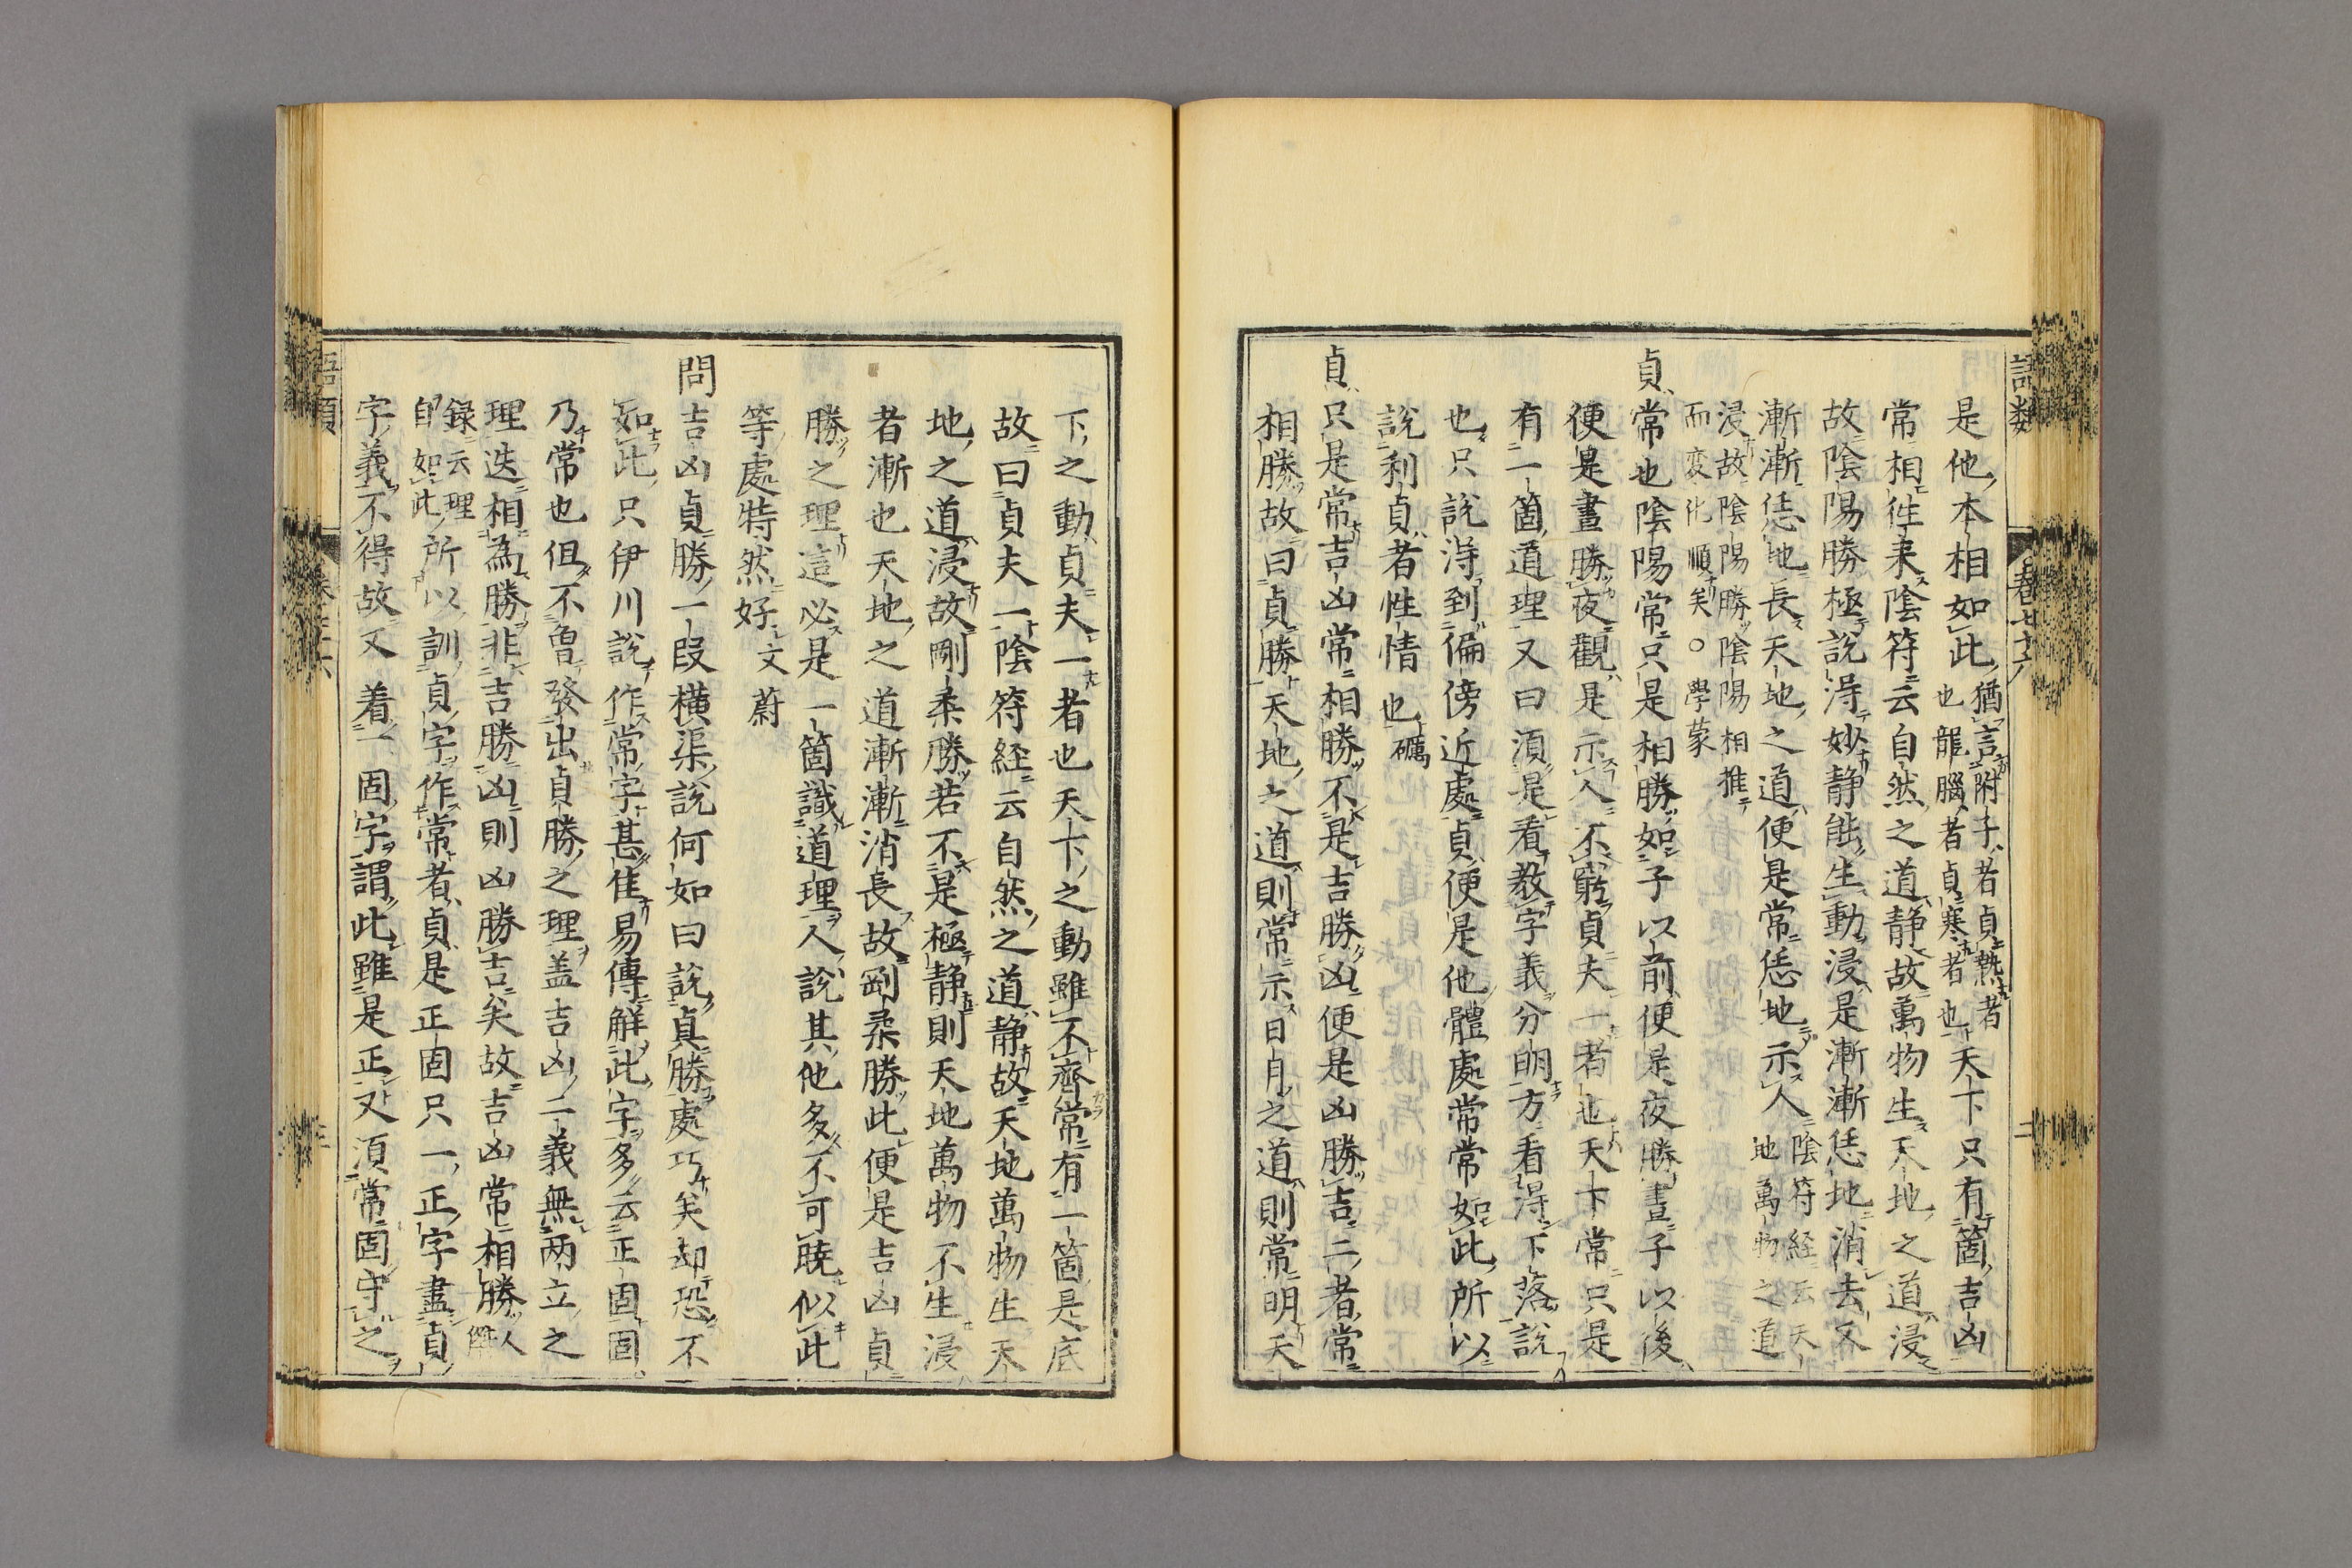 語類 卷七十六 二
是他本相如此猶言附子者貞熱者也龍腦者貞寒者也天下只有箇吉凶
常相徃来陰符云自然之道静故萬物生天地之道浸
故陰陽勝極說淂妙静能生動浸是漸漸恁地消去又
漸漸恁地長天地之道便是常恁地示人陰符経云天地萬物之道
浸故陰陽勝陰陽相推而変化順矣○學蒙
貞常也陰陽常只是相勝如子以前便是夜勝晝子以後
便是晝勝夜觀是示人不窮貞夫一者也天下常只是
有一箇道理又曰湏是看教字義分明方看淂下落說
也只說淂到偏傍近處貞便是他體處常常如此所以
說利貞者性情也礪
貞只是常吉凶常相勝不是吉勝凶便是凶勝吉二者常
相勝故曰貞勝天地之道則常示日月之道則常明天
下之動貞夫一者也天下之動雖不齊常有一箇是底
故曰貞夫一陰符経云自然之道静故天地萬物生天
地之道浸故剛柔勝若不是極静則天地萬物不生浸
者漸也天地之道漸漸消長故剛柔勝此便是吉凶貞
勝之理這必是一箇識道理人說其他多不可暁似此
等處特然好文蔚
問吉凶貞勝一段横渠說何如曰說貞勝處巧矣却恐不
如此只伊川說作常字甚佳易傳解此字多云正固固
乃常也但不曾發出貞勝之理盖吉凶二義無两立之
理迭相為勝非吉勝凶則凶勝吉矣故吉凶常相勝人傑
錄云理自如此所以訓貞字作常者貞是正固只一正字盡貞
字義不得故又着一固字謂此雖是正又湏常固守之
語類